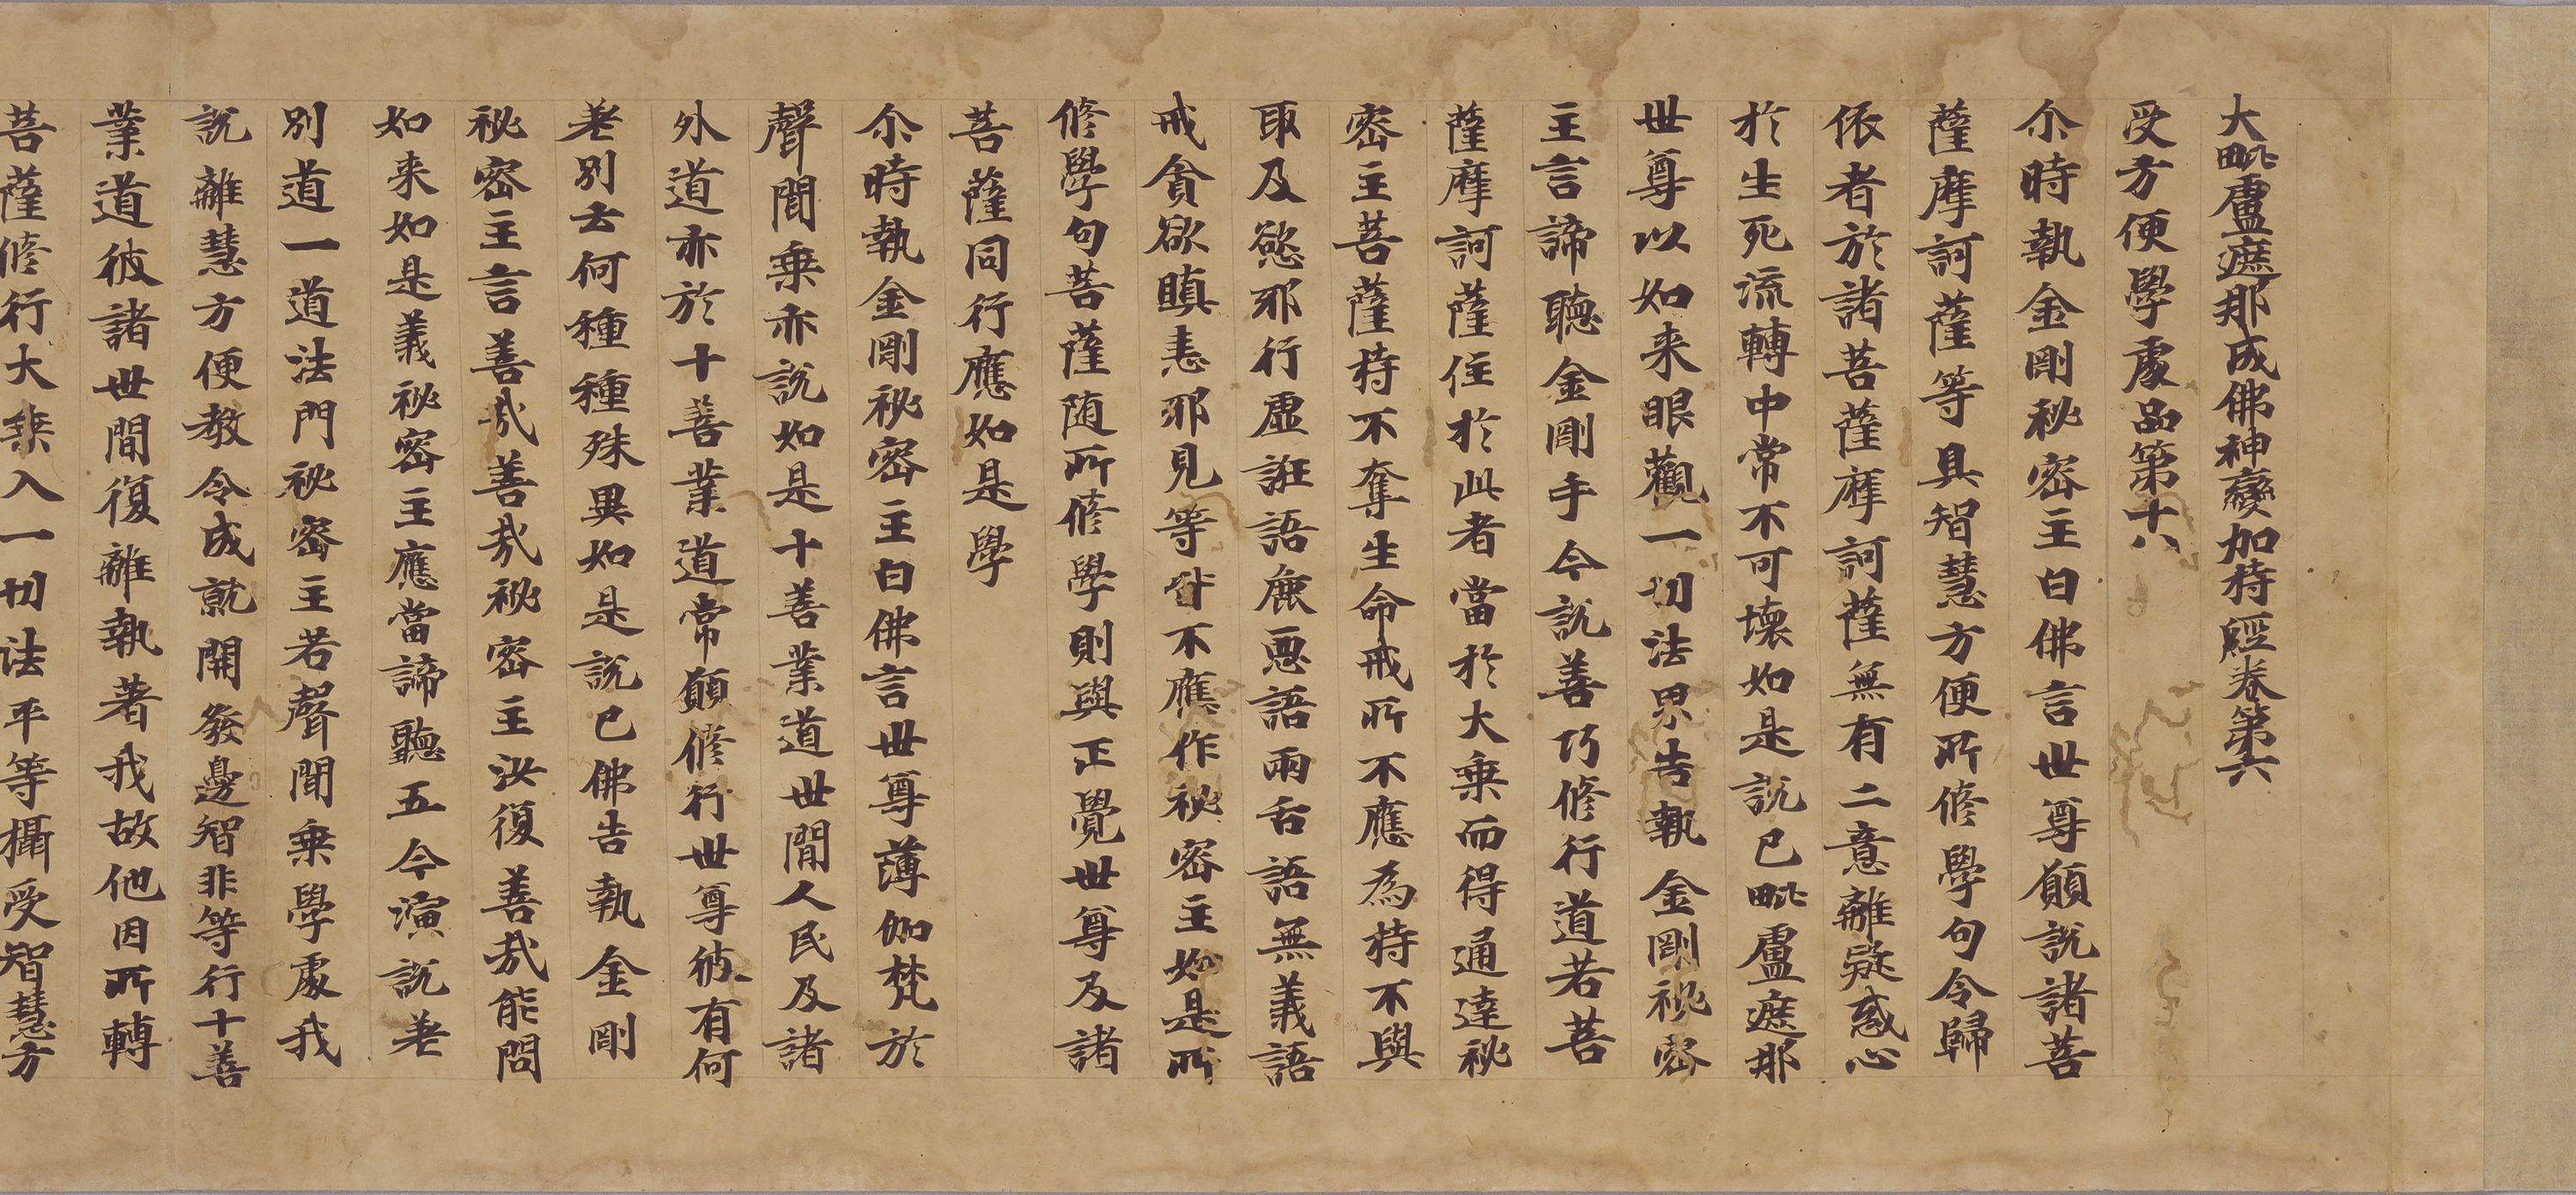 大毗盧遮那成佛神變加持經卷第六
受方便學處品第十八
尒時執金剛秘密主白佛言世尊願說諸菩
薩摩訶薩等具智慧方便所修學句令歸
依者於諸菩薩摩訶薩無有二意離疑惑心
於生死流轉中常不可壞如是說已毗盧遮那
世尊以如来眼觀一切法界告執金剛秘密
主言諦聽金剛手今説善巧修行道若菩
薩摩訶薩住於此者當於大乗而得通達秘
密主菩薩持不奪生命戒所不應為持不與
取及慾邪行虛誑語麁惡語兩舌語無義語
戒貪欲瞋恚邪見等皆不應作秘密主如是所
修學句菩薩随所修學則與正覺世尊及諸
菩薩同行應如是學
尒時執金剛秘密主白佛言世尊薄伽梵於
聲聞乗亦說如是十善業道世間人民及諸
外道亦於十善業道常願修行世尊彼有何
差別云何種種殊異如是説已佛告執金剛
秘密主言善哉善哉秘密主汝復善哉能問
如来如是義秘密主應當諦聽五今演説差
別道一道法門秘密主若聲聞乗學處我
說離慧方便教令成就開發邊智非等行十善
業道彼諸世間復離執著我故他因所轉
菩薩修行大乗入一切法平等攝受智慧方